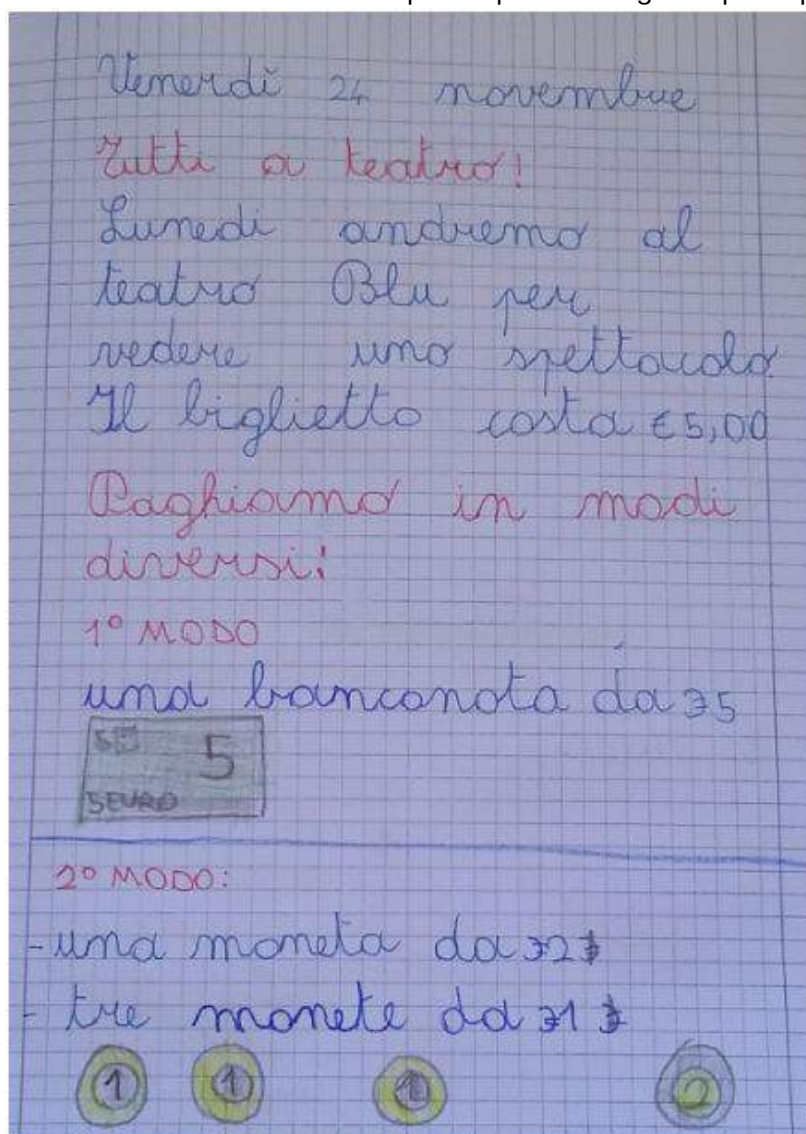 Venerdì 24 novembre
Tutti a teatro!
Lunedì andremo al
teatro Blu per
vedere uno spettacolo
Il biglietto costa €5,00
Paghiamo in modi
diversi:
1° MODO
una banconota da €5
5 5
5 EURO
2° MODO:
- una moneta da €2
- tre monete da €1
1 1 1 2